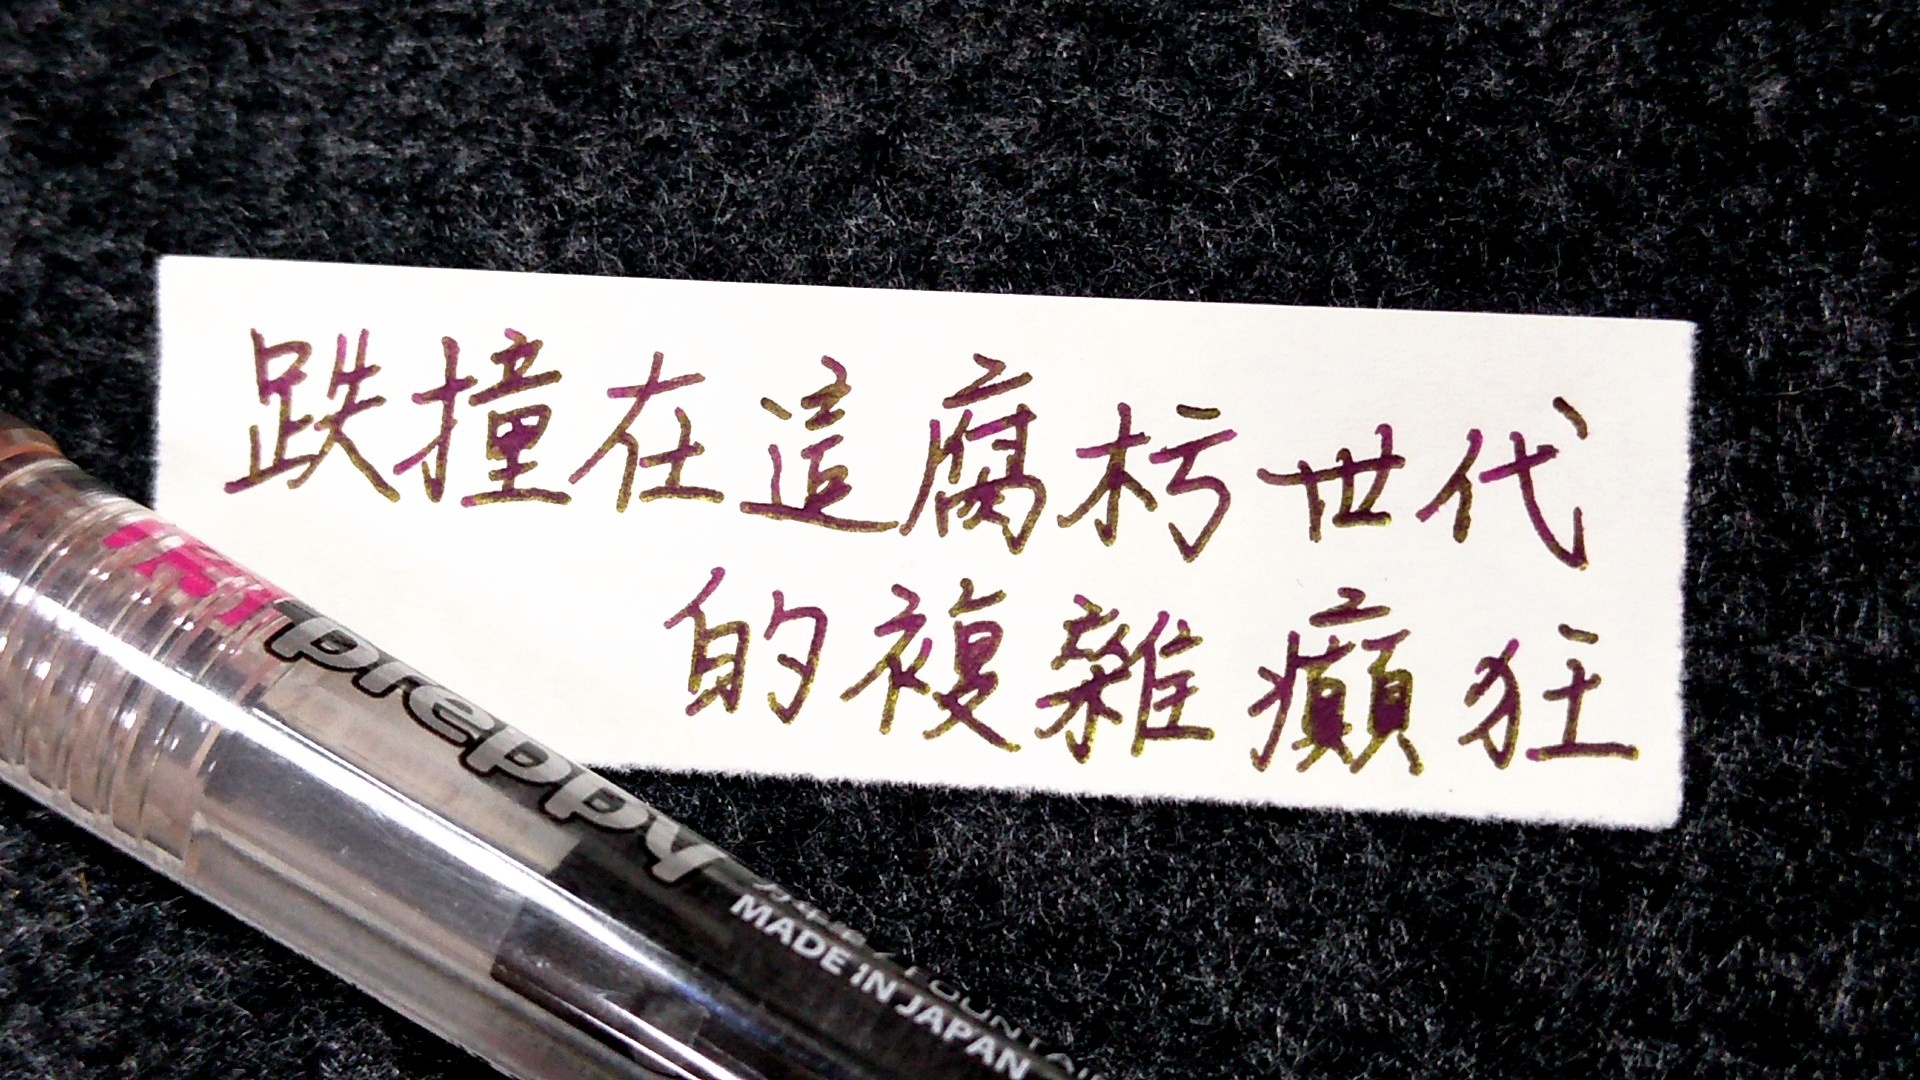 跌撞在這腐朽世代
的複雜癲狂
preppy
MADE IN JAPAN